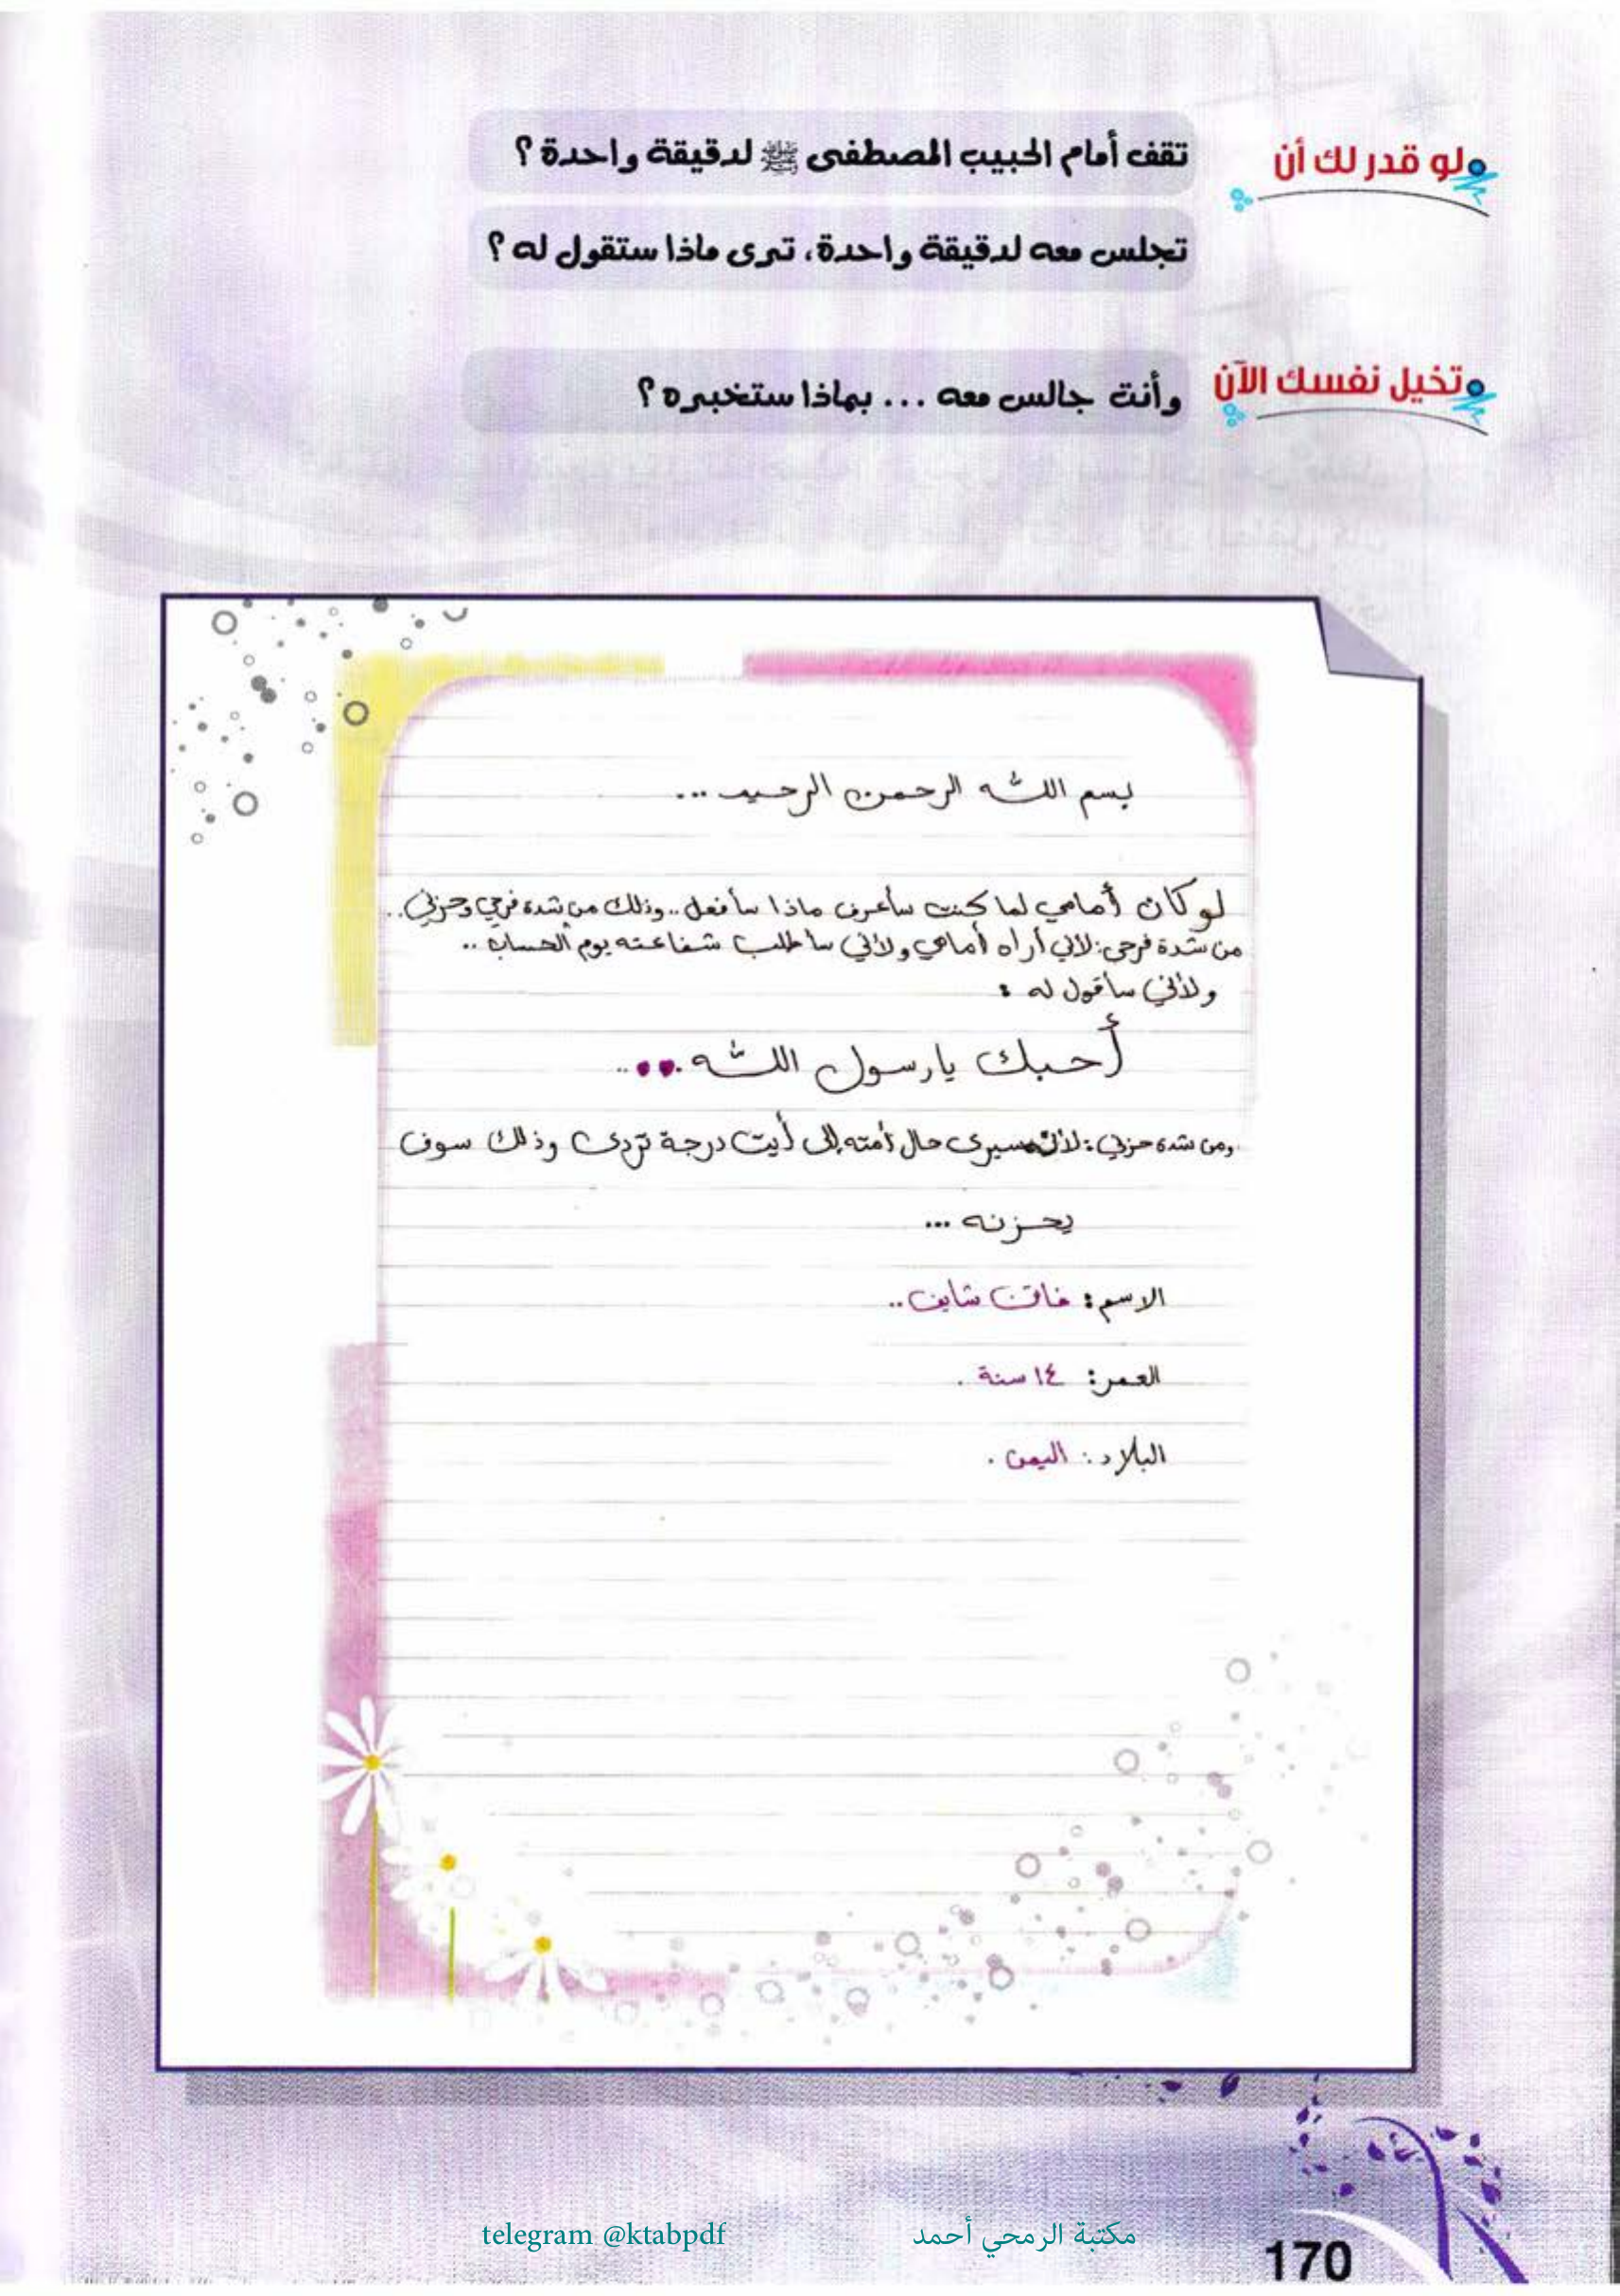 لو قدر لك أن تقف أمام الحبيب المصطفى ﷺ لدقيقة واحدة ؟
تجلس معه لدقيقة واحدة، ترى ماذا ستقول له ؟
تخيل نفسك الآن وأنت جالس معه ... بماذا ستخبره ؟
بسم الله الرحمن الرحيم ...
لو كان أمامي لما كنت سأعرف ماذا سأفعل .. وذلك من شدة فرحي وحزني ..
من شدة فرحي : لأني أراه أمامي ولأني سأطلب شفاعته يوم الحساب ..
ولأني سأقول له :
أحبك يارسول الله ..
ومن شدة حزني : لأنه سيرى حال أمته إلى أيت درجة تردى وذلك سوف
يحزنه ...
الاسم : شايف ..
العمر : ١٤ سنة .
البلاد : اليمن .
telegram @ktabpdf
مكتبة الرمحي أحمد
170